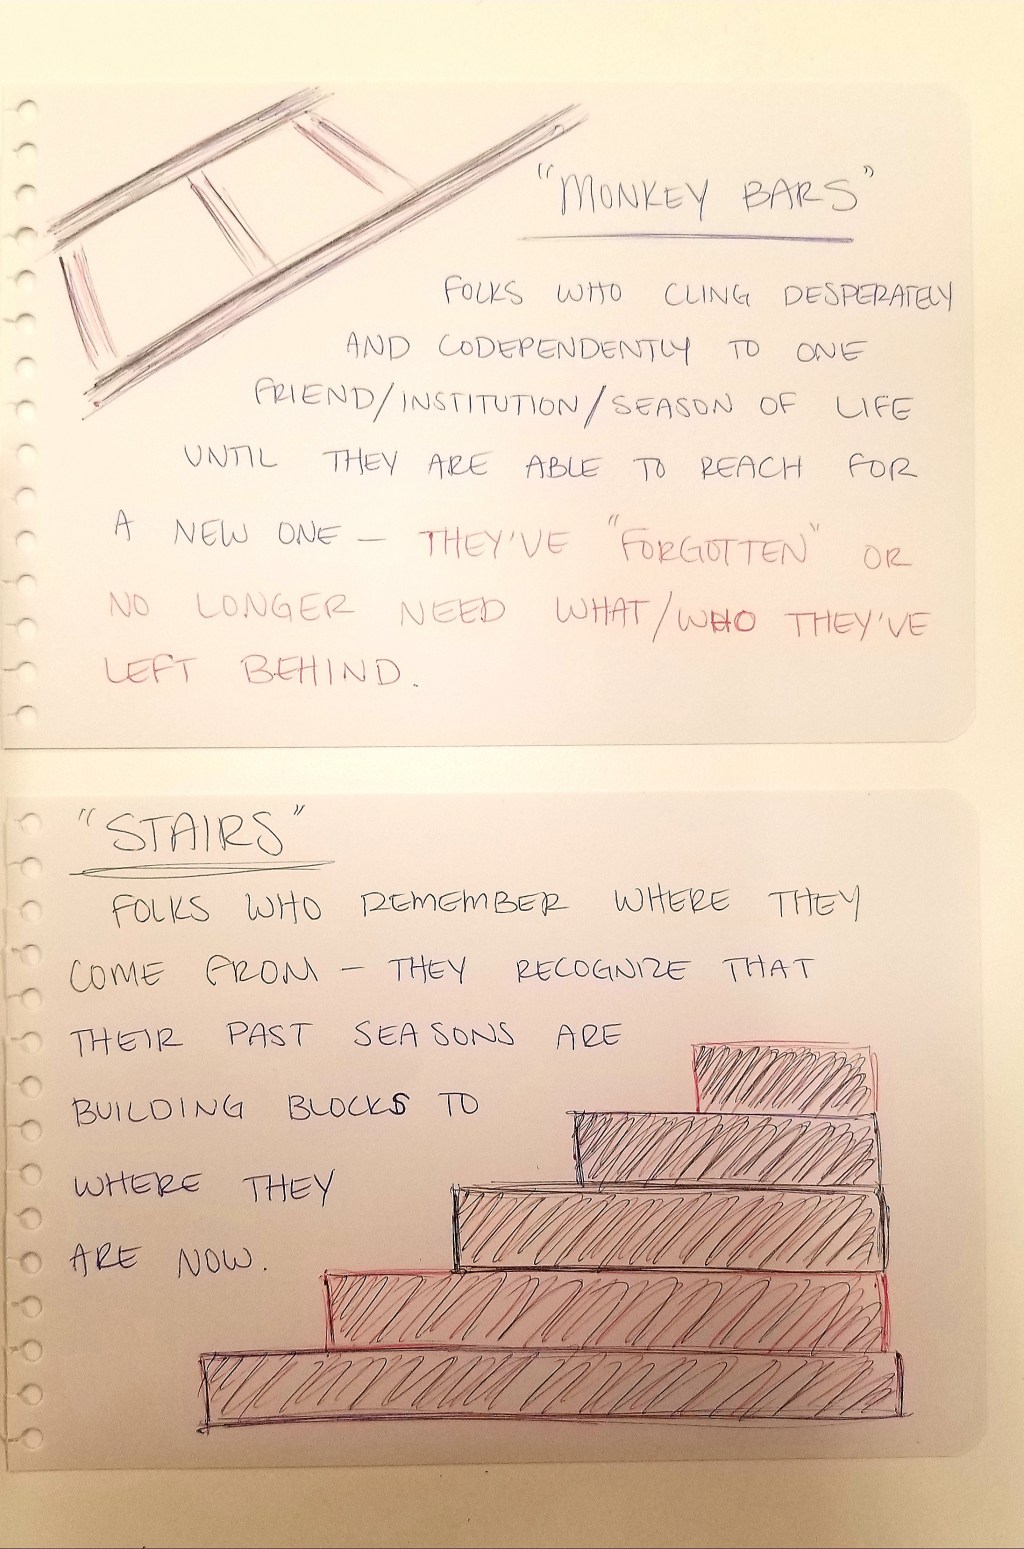 "MONKEY BARS"
FOLKS WHO CLING DESPERATELY
AND CODEPENDENTLY TO ONE
FRIEND/INSTITUTION/SEASON OF LIFE
UNTIL THEY ARE ABLE TO REACH FOR
A NEW ONE — THEY'VE "FORGOTTEN" OR
NO LONGER NEED WHAT/WHO THEY'VE
LEFT BEHIND.
"STAIRS"
FOLKS WHO REMEMBER WHERE THEY
COME FROM — THEY RECOGNIZE THAT
THEIR PAST SEASONS ARE
BUILDING BLOCKS TO
WHERE THEY
ARE NOW.